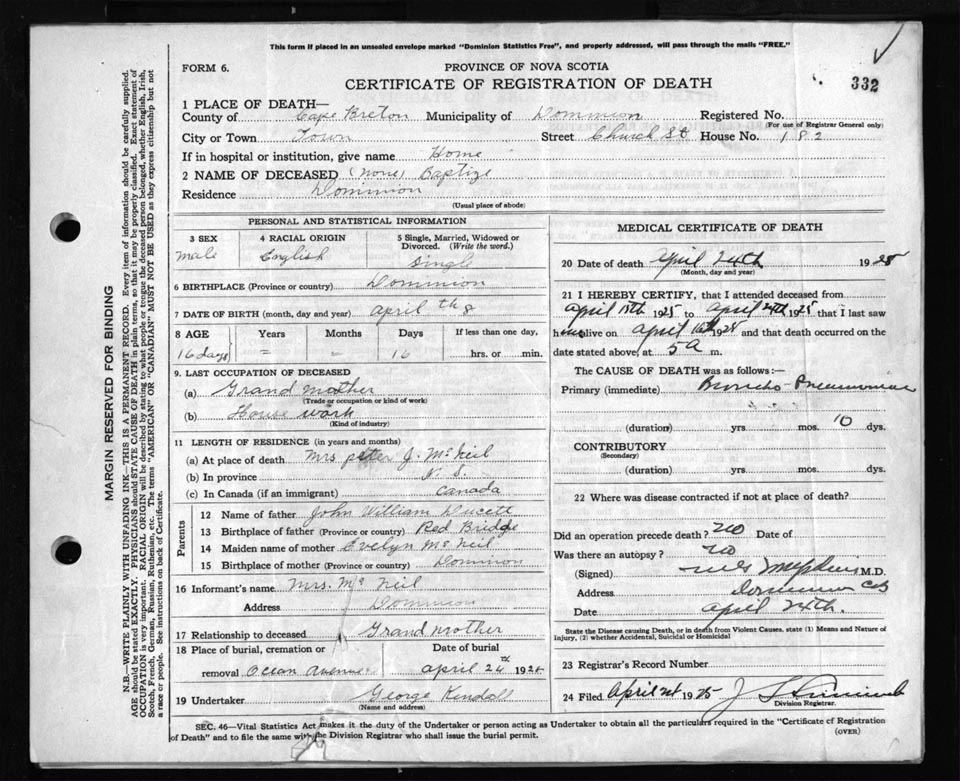 This form if placed in an unsealed envelope marked "Dominion Statistics Free", and properly addressed, will pass through the mails "FREE."
FORM 6.
PROVINCE OF NOVA SCOTIA
CERTIFICATE OF REGISTRATION OF DEATH
332
1 PLACE OF DEATH—
County of Cape Breton Municipality of Dominion Registered No.
(For use of Registrar General only)
City or Town Town Street Church St House No. 182
If in hospital or institution, give name Home
2 NAME OF DECEASED (none) Baptize
Residence Dominion
(Usual place of abode)
PERSONAL AND STATISTICAL INFORMATION
3 SEX 4 RACIAL ORIGIN 5 Single, Married, Widowed or Divorced. (Write the word.)
male English Single
6 BIRTHPLACE (Province or country) Dominion
7 DATE OF BIRTH (month, day and year) april th 8
8 AGE Years Months Days If less than one day,
16 days = = 16 hrs. or min.
9. LAST OCCUPATION OF DECEASED
(a) Grand mother
(Trade or occupation or kind of work)
(b) House work
(Kind of industry)
11 LENGTH OF RESIDENCE (in years and months)
(a) At place of death Mrs peter J. McNeil
(b) In province
(c) In Canada (if an immigrant) Canada
Parents
12 Name of father John William Ducett
13 Birthplace of father (Province or country) Red Bridge
14 Maiden name of mother Evelyn McNeil
15 Birthplace of mother (Province or country) Dominion
16 Informant's name Mrs. McNeil
Address Dominion
17 Relationship to deceased Grand mother
18 Place of burial, cremation or removal Date of burial
Ocean Avenue april 24 th 192
19 Undertaker George Kendall
(Name and address)
MEDICAL CERTIFICATE OF DEATH
20 Date of death April 24th 1925
(Month, day and year)
21 I HEREBY CERTIFY, that I attended deceased from
April 1925 to April 24th 1925 that I last saw
h alive on April 192 and that death occurred on
date stated above, at 5 a m.
The CAUSE OF DEATH was as follows:—
Primary (immediate) Broncho-Pneumonia
(duration) yrs. mos. 10 dys.
CONTRIBUTORY
(Secondary)
(duration) yrs. mos. dys.
22 Where was disease contracted if not at place of death?
Did an operation precede death? no Date of
Was there an autopsy? no
(Signed) M.D.
Address Dominion CB
Date April 24th.
State the Disease causing Death, or in death from Violent Causes, state (1) Means and Nature of
Injury, (2) whether Accidental, Suicidal or Homicidal
23 Registrar's Record Number
24 Filed April 1925
Division Registrar.
SEC. 46—Vital Statistics Act makes it the duty of the Undertaker or person acting as Undertaker to obtain all the particulars required in the "Certificate of Registration
of Death" and to file the same with the Division Registrar who shall issue the burial permit.
(OVER)
MARGIN RESERVED FOR BINDING
N.B.—WRITE PLAINLY WITH UNFADING INK—THIS IS A PERMANENT RECORD. Every item of information should be carefully supplied.
AGE should be stated EXACTLY. PHYSICIANS should STATE CAUSE OF DEATH in plain terms, so that it may be properly classified. Exact statement of
OCCUPATION is very important. RACIAL ORIGIN will be described by stating to what people or tongue the deceased person belonged, whether English, Irish,
Scotch, French, German, Russian, Ruthenian, etc. The terms "AMERICAN" OR "CANADIAN" MUST NOT BE USED as they express citizenship but not
a race or people. See instructions on back of Certificate.